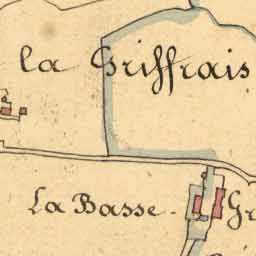 la Griffrais
La Basse. Gr